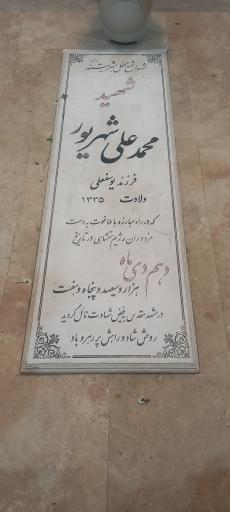 شهدا شمع محفل بشریتند
شهید
محمد علی شهریور
فرزند یوسفعلی
ولادت ۱۳۳۵
که در راه مبارزه با طاغوت به دست
مزدوران رژیم شاهی در تاریخ
دهم دی ماه
هزار و سیصد و پنجاه و هفت
در مشهد مقدس به فیض شهادت نائل گردید
روحش شاد و راهش پر رهرو باد